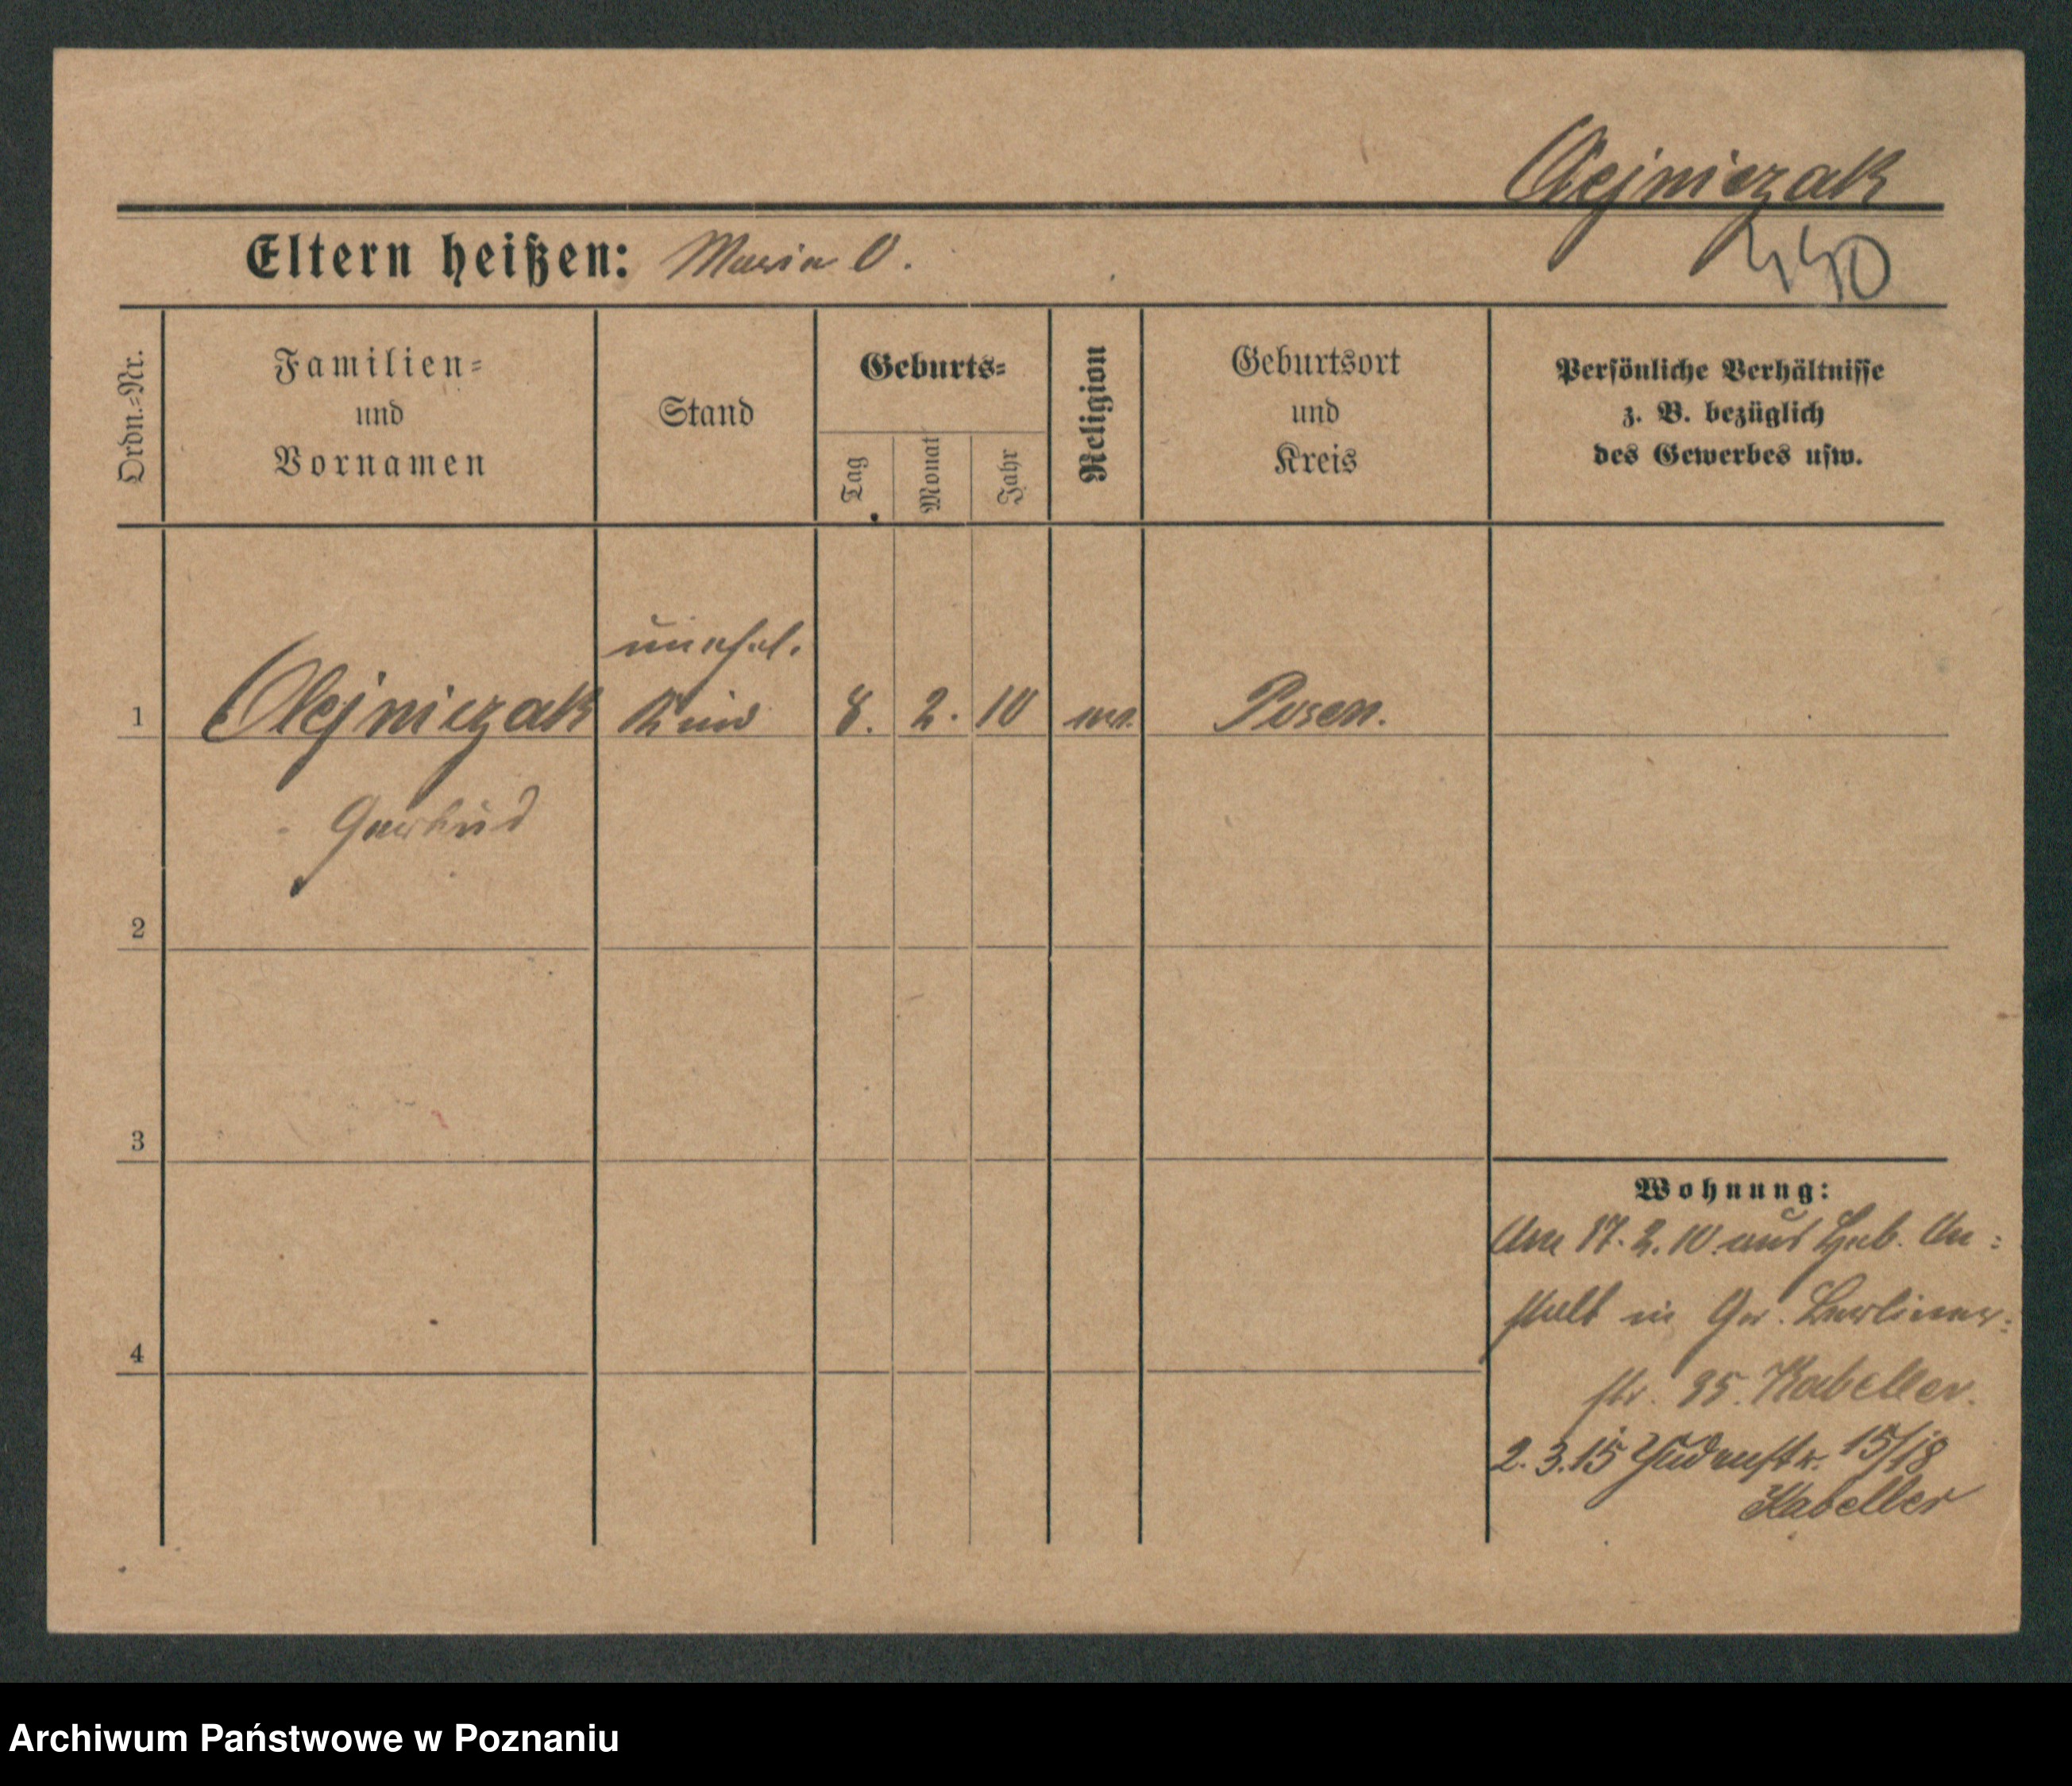 Olejniczak
Eltern heißen: Maria O.
440
Ordn.-Nr.
Familien-
und
Vornamen
Stand
Geburts-
Tag
Monat
Jahr
Religion
Geburtsort
und
Kreis
Persönliche Verhältnisse
z. B. bezüglich
des Gewerbes usw.
unehel.
1 Olejniczak Kind 8. 2. 10 Posen.
Gertrud
2
3
4
Wohnung:
Am 17. 2. 10. aus Heb. An=
stalt in Gr. Berliner=
str. 95. Kabeller.
2. 3. 15 Judenstr. 15/18
Kabeller
Archiwum Państwowe w Poznaniu